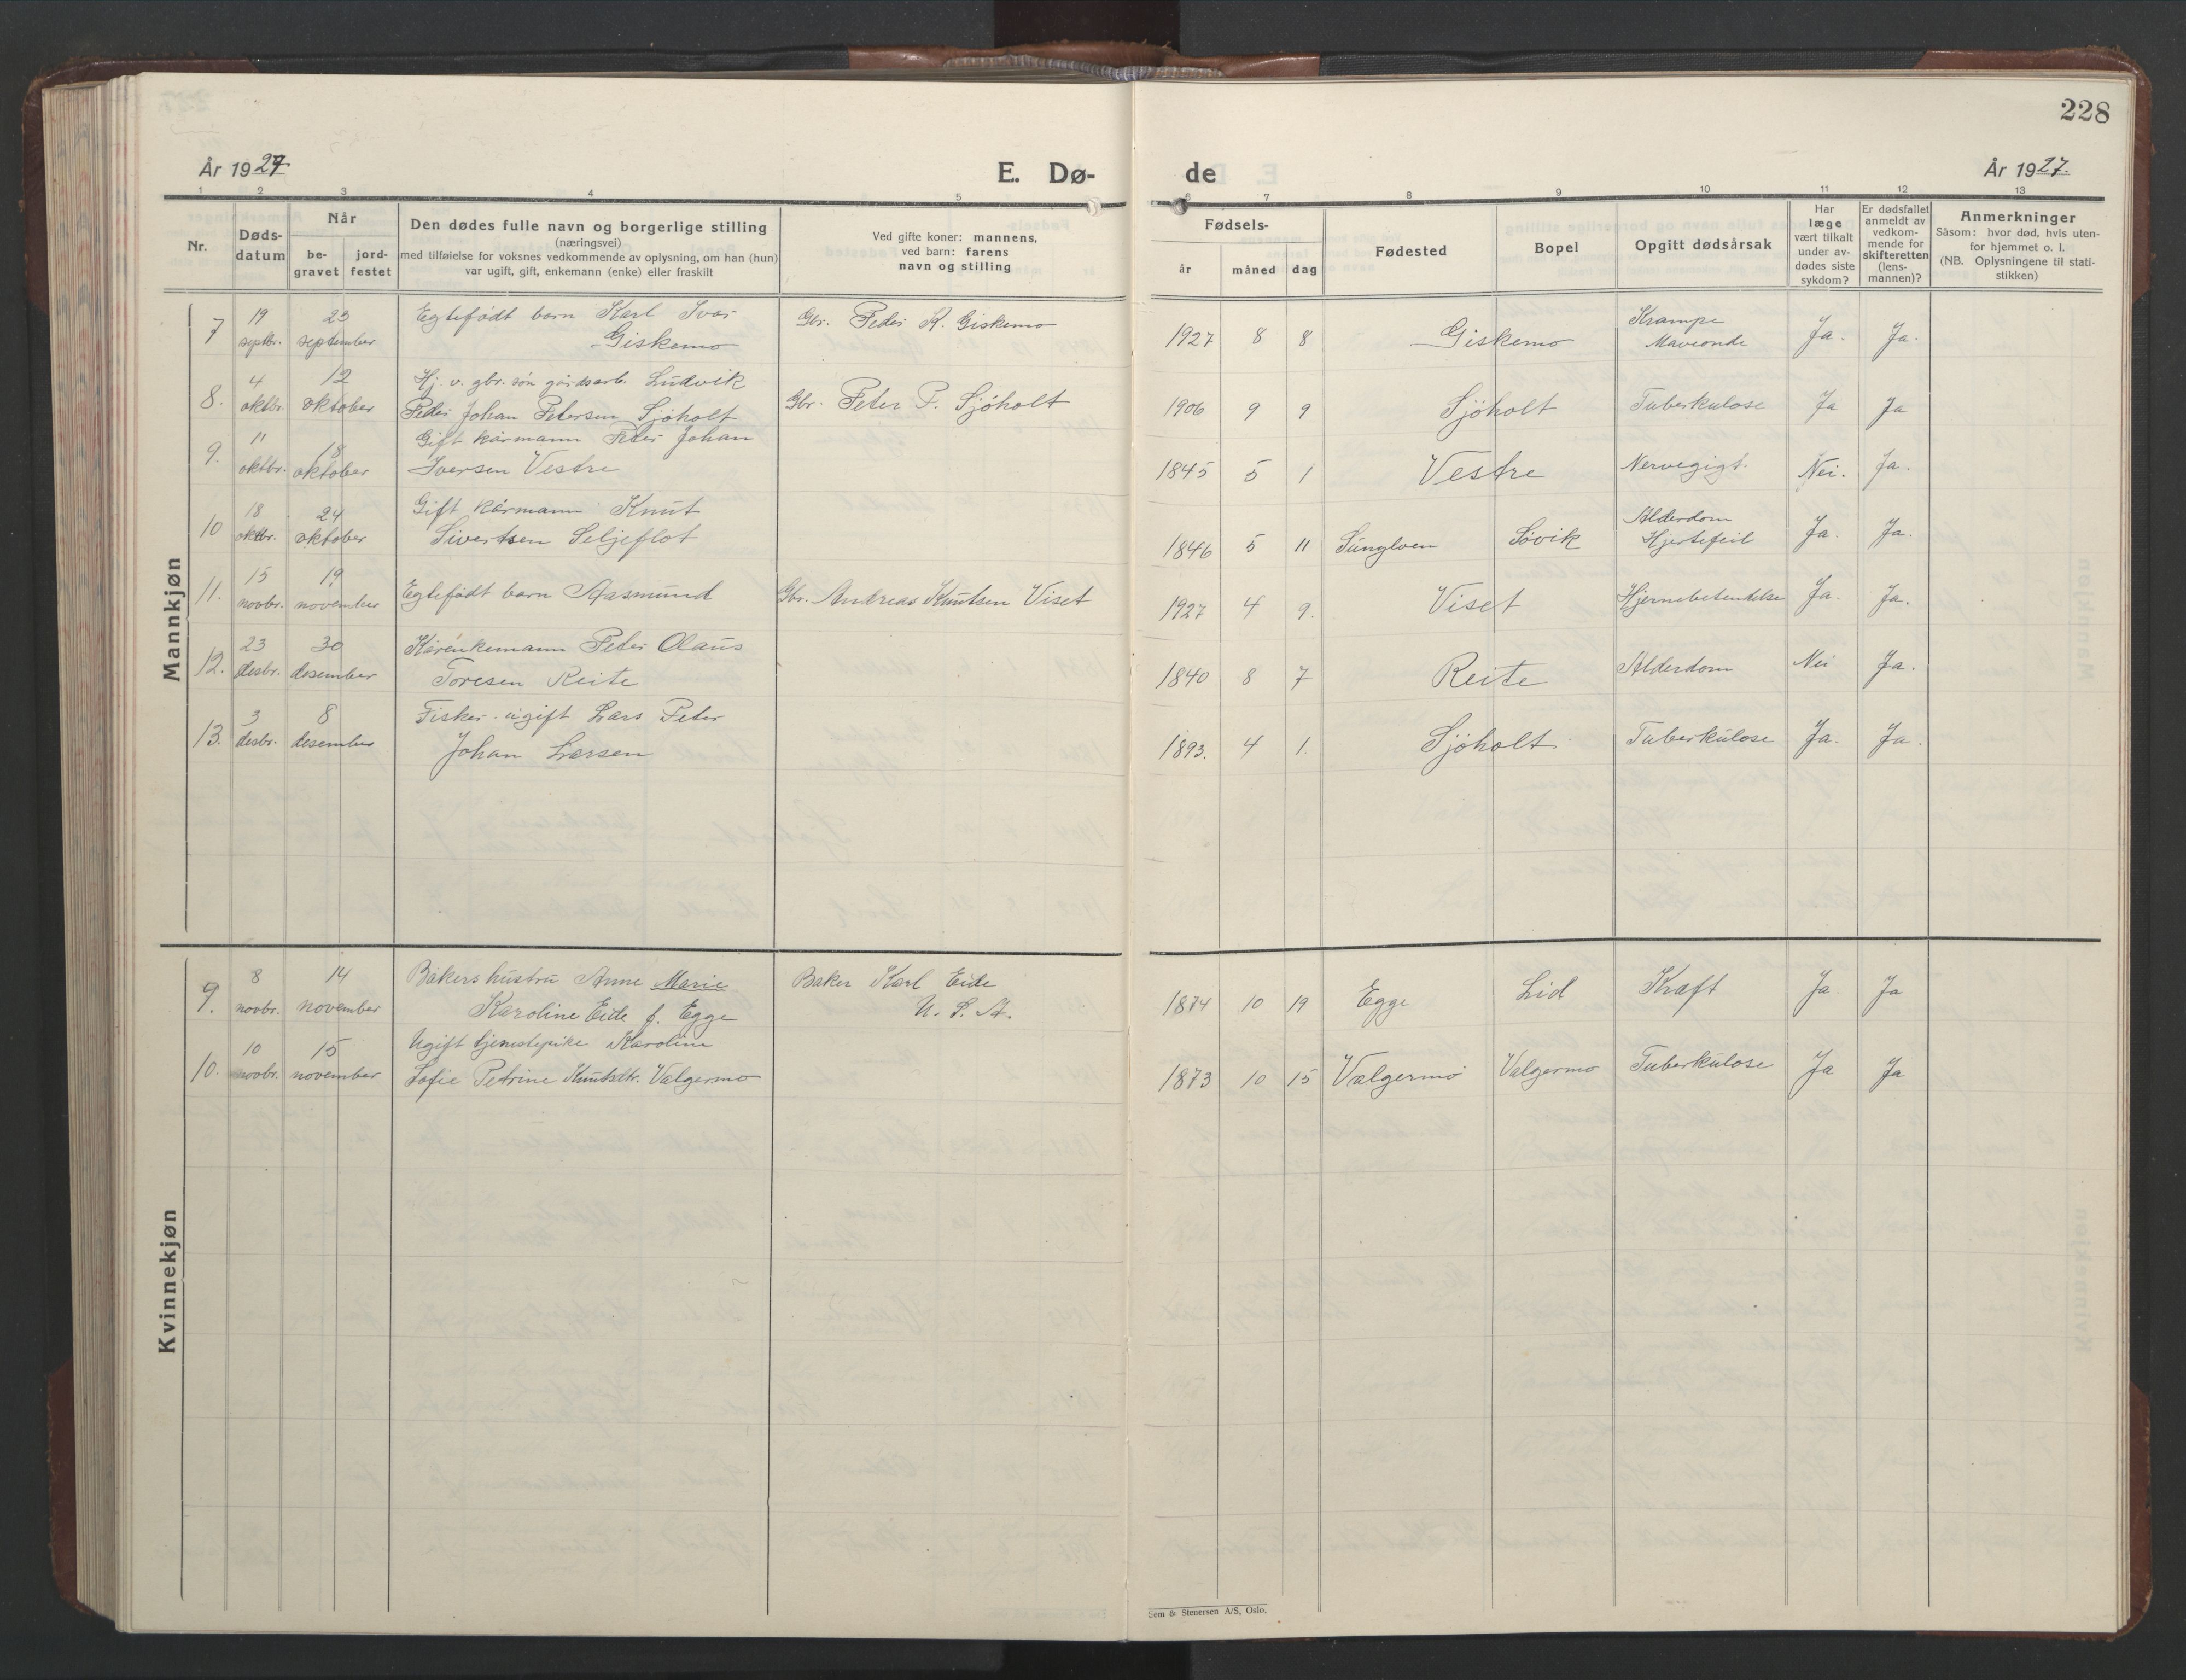 228
År 1927
E. Dø-
de
År 1927.
1 2 3 4 5 6 7 8 9 10 11 12 13
Nr.
Døds-
datum
Når
be-
gravet
jord-
festet
Den dødes fulle navn og borgerlige stilling
(næringsvei)
med tilføielse for voksnes vedkommende av oplysning, om han (hun)
var ugift, gift, enkemann (enke) eller fraskilt
Ved gifte koner: mannens,
ved barn: farens
navn og stilling
Fødsels-
år
måned
dag
Fødested
Bopel
Opgitt dødsårsak
Har
læge
vært tilkalt
under av-
dødes siste
sykdom?
Er dødsfallet
anmeldt av
vedkom-
mende for
skifteretten
(lens-
mannen)?
Anmerkninger
Såsom: hvor død, hvis uten-
for hjemmet o. l.
(NB. Oplysningene til stati-
stikken)
Mannkjøn
7 19 septbr. 23 september Egtefødt barn Karl Ivar
Giskemo
Gbr. Peder K. Giskemo 1927 8 8 Giskemo Krampe
Maveonde
Ja. Ja.
8. 4 oktbr. 12 oktober Hj. v. gbr. søn gårdsarb. Ludvik
Peder Johan Petersen Sjøholt
Gbr. Peter P. Sjøholt 1906 9 9 Sjøholt Tuberkulose Ja Ja
9. 11 oktbr. 18 oktober Gift kårmann Peder Johan
Iversen Vestre
1845 5 1 Vestre Nervegigt. Nei. Ja.
10 18 oktbr. 24 oktober Gift kårmann Knut
Sivertsen Seljeflot
1846 5 11 Søvik Alderdom
Hjertefeil
Ja. Ja.
11. 15 novbr. 19 november Egtefødt barn Aasmund
Gbr. Andreas Knutsen Viset 1927 4 9. Viset Hjernebetendelse Ja. Ja.
12. 23 desbr. 30 desember Kårenkemann Peder Olaus
Toresen Reite
1840 8 7 Reite Alderdom Nei Ja.
13. 3 desbr. 8 desember Fisker ugift Lars Peter
Johan Larsen
1893. 4 1. Sjøholt Tuberkulose Ja. Ja.
Kvinnekjøn
9. 8 novbr. 14 november Bakers hustru Anne Marie
Karoline Eide f. Egge
Baker Karl Eide
U. S. A.
1874 10 19 Egge Lid Kræft Ja. Ja
10. 10 novbr. 15 november Ugift tjenestepike Karoline
Sofie Petrine Knutsdtr. Valgermo
1873 10 15 Valgermo Valgermo Tuberkulose Ja Ja
Sem & Stenersen A/S, Oslo.